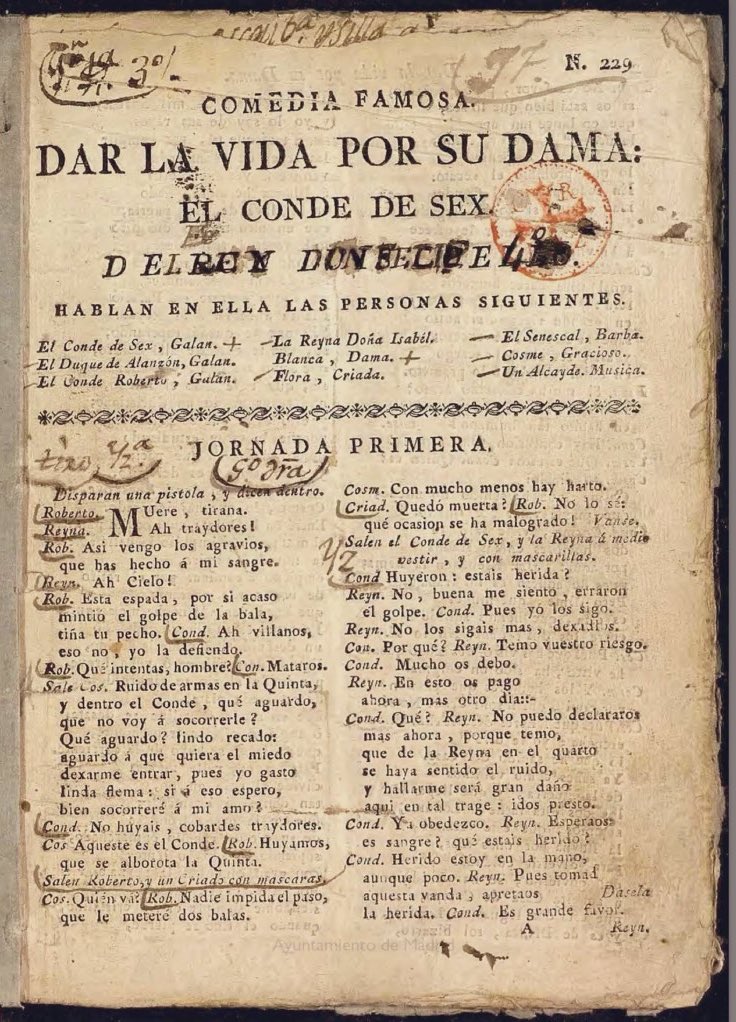 N. 229
COMEDIA FAMOSA.
DAR LA VIDA POR SU DAMA:
EL CONDE DE SEX.
DEL REY DON FELIPE 4º.
HABLAN EN ELLA LAS PERSONAS SIGUIENTES.
El Conde de Sex, Galan. +
El Duque de Alanzón, Galan.
El Conde Roberto, Galan.
La Reyna Doña Isabél.
Blanca, Dama. +
Flora, Criada.
El Senescal, Barba.
Cosme, Gracioso.
Un Alcayde. Musica.
JORNADA PRIMERA.
Disparan una pistola, y dicen dentro.
Roberto. MUere, tirana.
Reyna. Ah traydores!
Rob. Asi vengo los agravios,
que has hecho á mi sangre.
Reyn. Ah Cielo!
Rob. Esta espada, por si acaso
mintió el golpe de la bala,
tiña tu pecho. Cond. Ah villanos,
eso no, yo la defiendo.
Rob. Qué intentas, hombre? Con. Mataros.
Sale Cos. Ruido de armas en la Quinta,
y dentro el Conde, qué aguardo,
que no voy á socorrerle?
Qué aguardo? lindo recado:
aguardo á que quiera el miedo
dexarme entrar, pues yo gasto
linda flema: si á eso espero,
bien socorreré á mi amo?
Cond. No huyais, cobardes traydores.
Cos Aqueste es el Conde. Rob. Huyamos,
que se alborota la Quinta.
Salen Roberto, y un Criado con mascaras.
Cos. Quién vá? Rob. Nadie impida el paso,
que le meteré dos balas.
Cosm. Con mucho menos hay harto.
Criad. Quedó muerta? Rob. No lo sé:
qué ocasion se ha malogrado! Vanse.
Salen el Conde de Sex, y la Reyna á medio
vestir, y con mascarillas.
Cond Huyeron: estais herida?
Reyn. No, buena me siento, erraron
el golpe. Cond. Pues yo los sigo.
Reyn. No los sigais mas, dexadlos.
Con. Por qué? Reyn. Temo vuestro riesgo.
Cond. Mucho os debo.
Reyn. En esto os pago
ahora, mas otro dia::-
Cond. Qué? Reyn. No puedo declararos
mas ahora, porque temo,
que de la Reyna en el quarto
se haya sentido el ruido,
y hallarme será gran daño
aqui en tal trage: idos presto.
Cond. Ya obedezco. Reyn. Esperaos:
es sangre? qué estais herido?
Cond. Herido estoy en la mano,
aunque poco. Reyn. Pues tomad
aquesta vanda, apretaos Dasela
la herida. Cond. Es grande favor.
A Reyn.
Ayuntamiento de Madrid